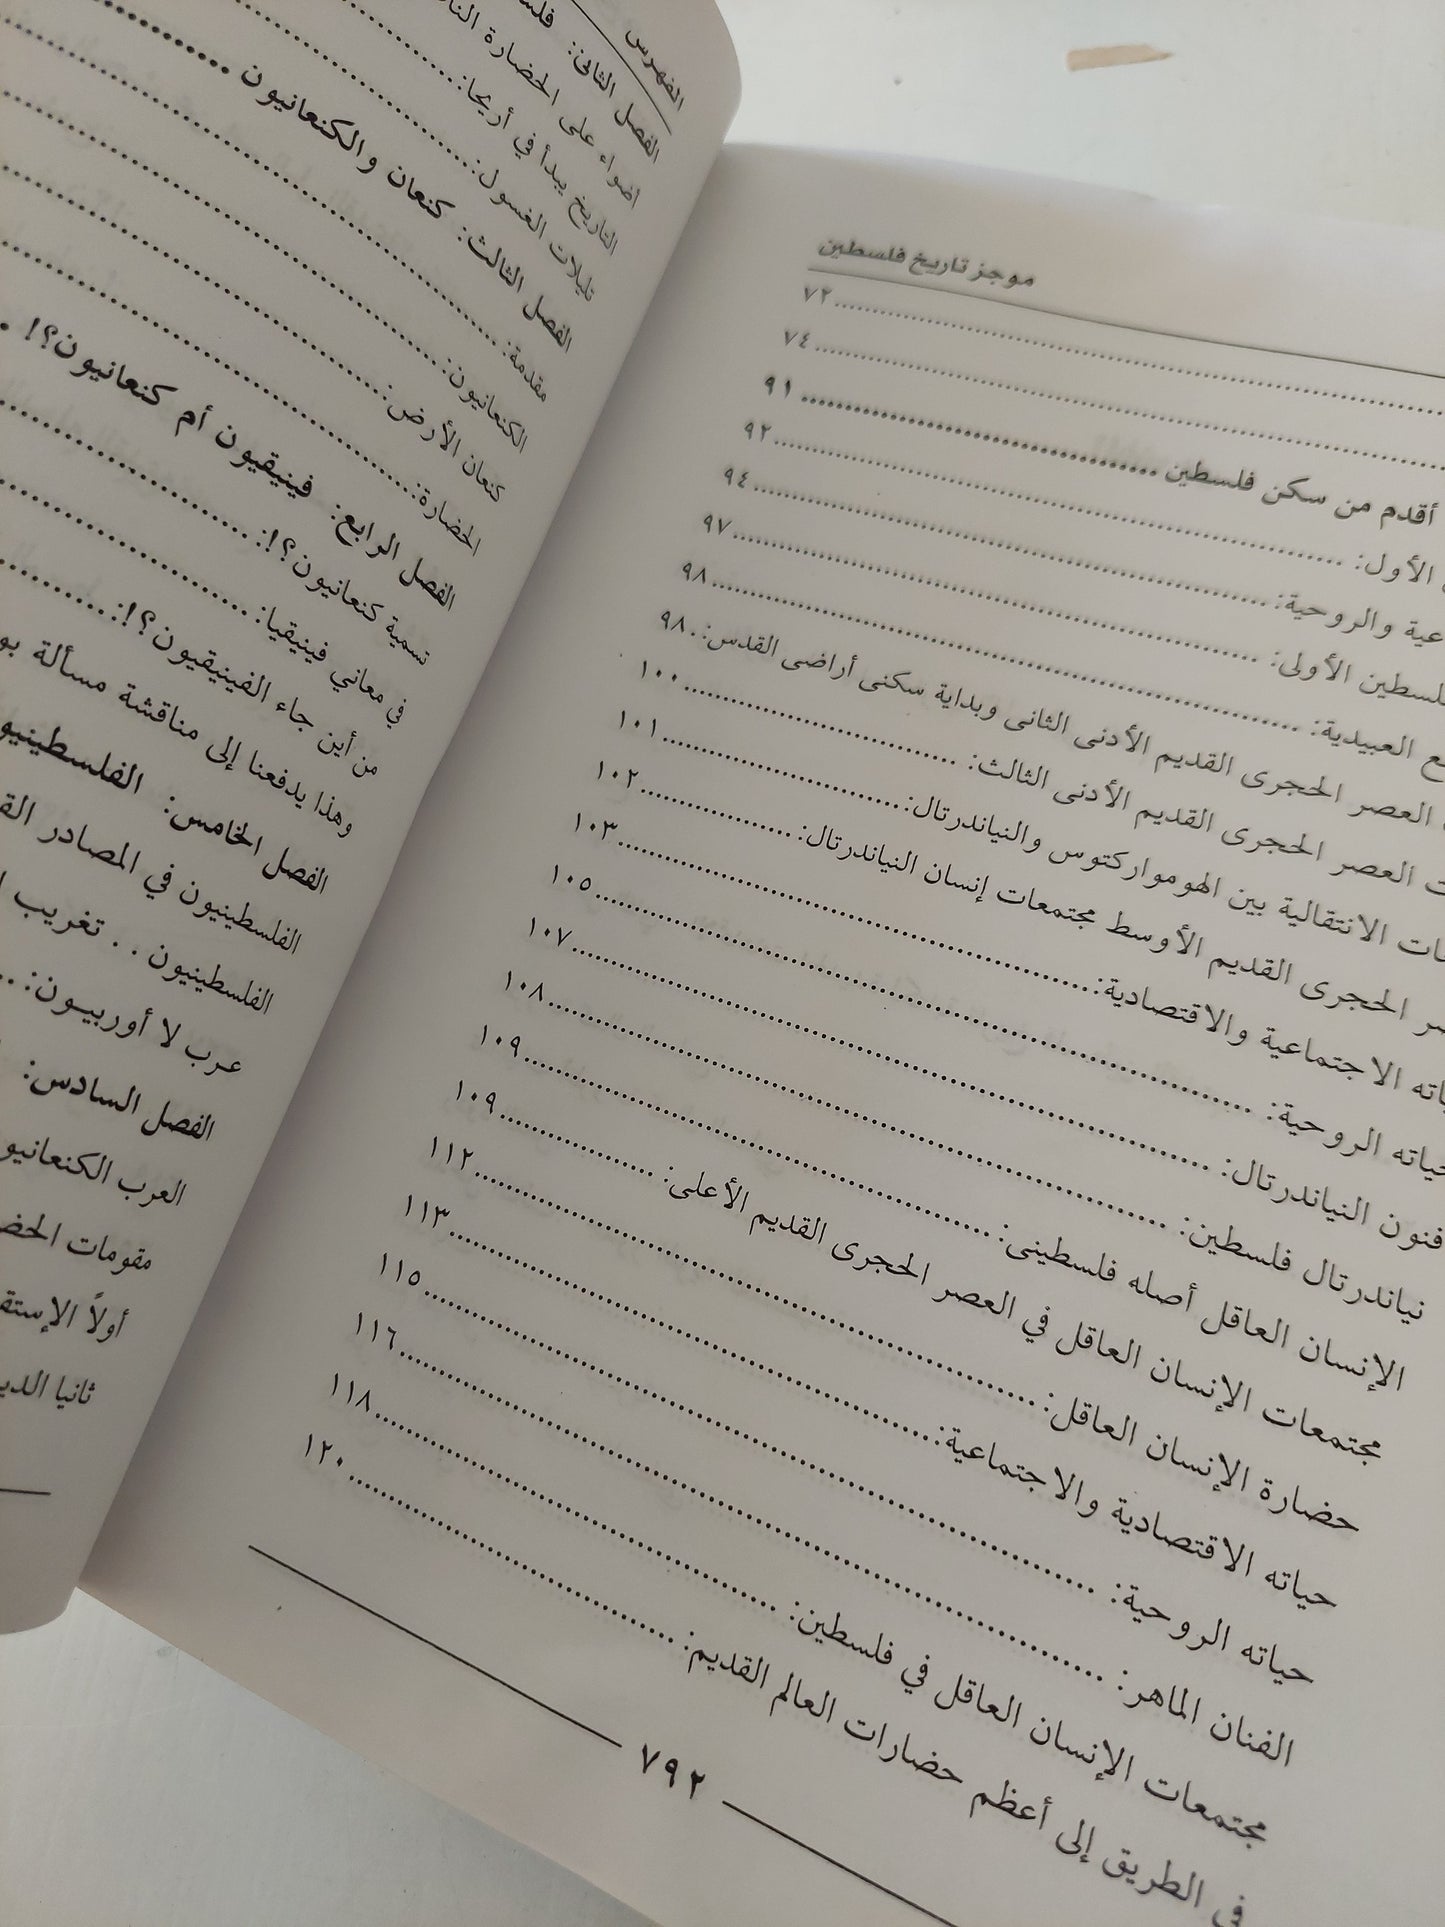 موجز تاريخ فلسطين
................ ٧٢
................ ٧٤
أقدم من سكن فلسطين ................ ٩١
الأول: ................ ٩٢
والروحية: ................ ٩٤
الأولى: ................ ٩٧
العبيدية: ................ ٩٨
العصر الحجرى القديم الأدنى الثانى وبداية سكنى أراضى القدس: ٩٨
العصر الحجرى القديم الأدنى الثالث: ................ ١٠٠
الانتقالية بين الهومواركتوس والنياندرتال: ................ ١٠١
الحجرى القديم الأوسط مجتمعات إنسان النياندرتال: ................ ١٠٢
الاجتماعية والاقتصادية: ................ ١٠٣
حياته الروحية: ................ ١٠٥
فنون النياندرتال: ................ ١٠٧
نياندرتال فلسطين: ................ ١٠٨
الإنسان العاقل أصله فلسطينى: ................ ١٠٩
مجتمعات الإنسان العاقل في العصر الحجرى القديم الأعلى: ................ ١٠٩
حضارة الإنسان العاقل: ................ ١١٢
حياته الاقتصادية والاجتماعية: ................ ١١٣
حياته الروحية: ................ ١١٥
الفنان الماهر: ................ ١١٦
مجتمعات الإنسان العاقل في فلسطين: ................ ١١٨
في الطريق إلى أعظم حضارات العالم القديم: ................ ١٢٠
٧٩٢
الفهرس
الفصل الثانى:
أضواء على الحضارة
التاريخ يبدأ في أريحا: ................
تليلات الغسول: ................
الفصل الثالث: كنعان والكنعانيون ................
مقدمة: ................
الكنعانيون: ................
كنعان الأرض: ................
الحضارة: ................
الفصل الرابع: فينيقيون أم كنعانيون؟!
تسمية كنعانيون؟!: ................
في معاني فينيقيا: ................
من أين جاء الفينيقيون؟!: ................
وهذا يدفعنا إلى مناقشة مسألة
الفصل الخامس: الفلسطينيو
الفلسطينيون في المصادر
الفلسطينيون . . تغريب
عرب لا أوربيون: ..
الفصل السادس:
العرب الكنعانيو
مقومات الحض
أولاً الإستق
ثانيا الدي